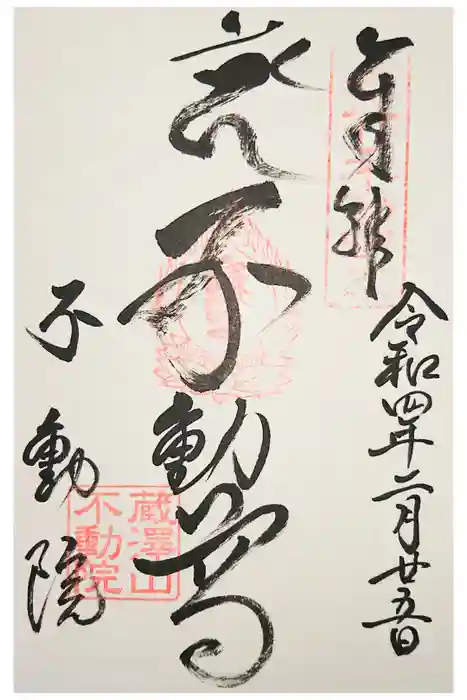 令和四年二月廿五日
不動尊
不動院
蔵澤山
不動院